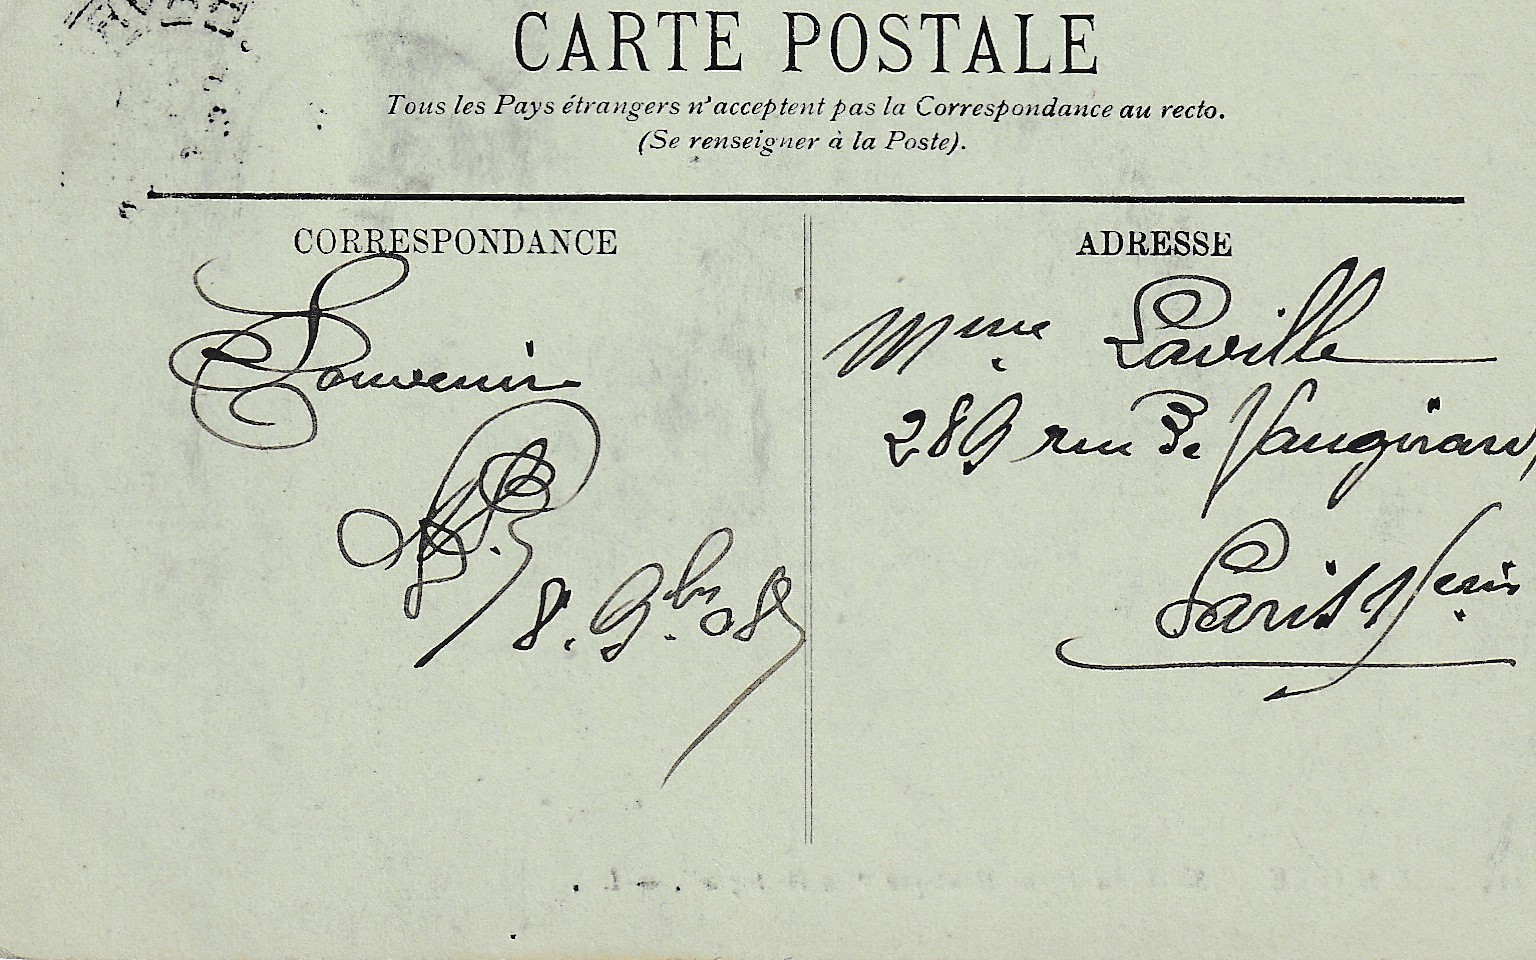 CARTE POSTALE
Tous les Pays étrangers n'acceptent pas la Correspondance au recto.
(Se renseigner à la Poste).
CORRESPONDANCE
Souvenir
8. 9bre 08
ADRESSE
Mme Laville
289 rue De Vaugirard
Paris